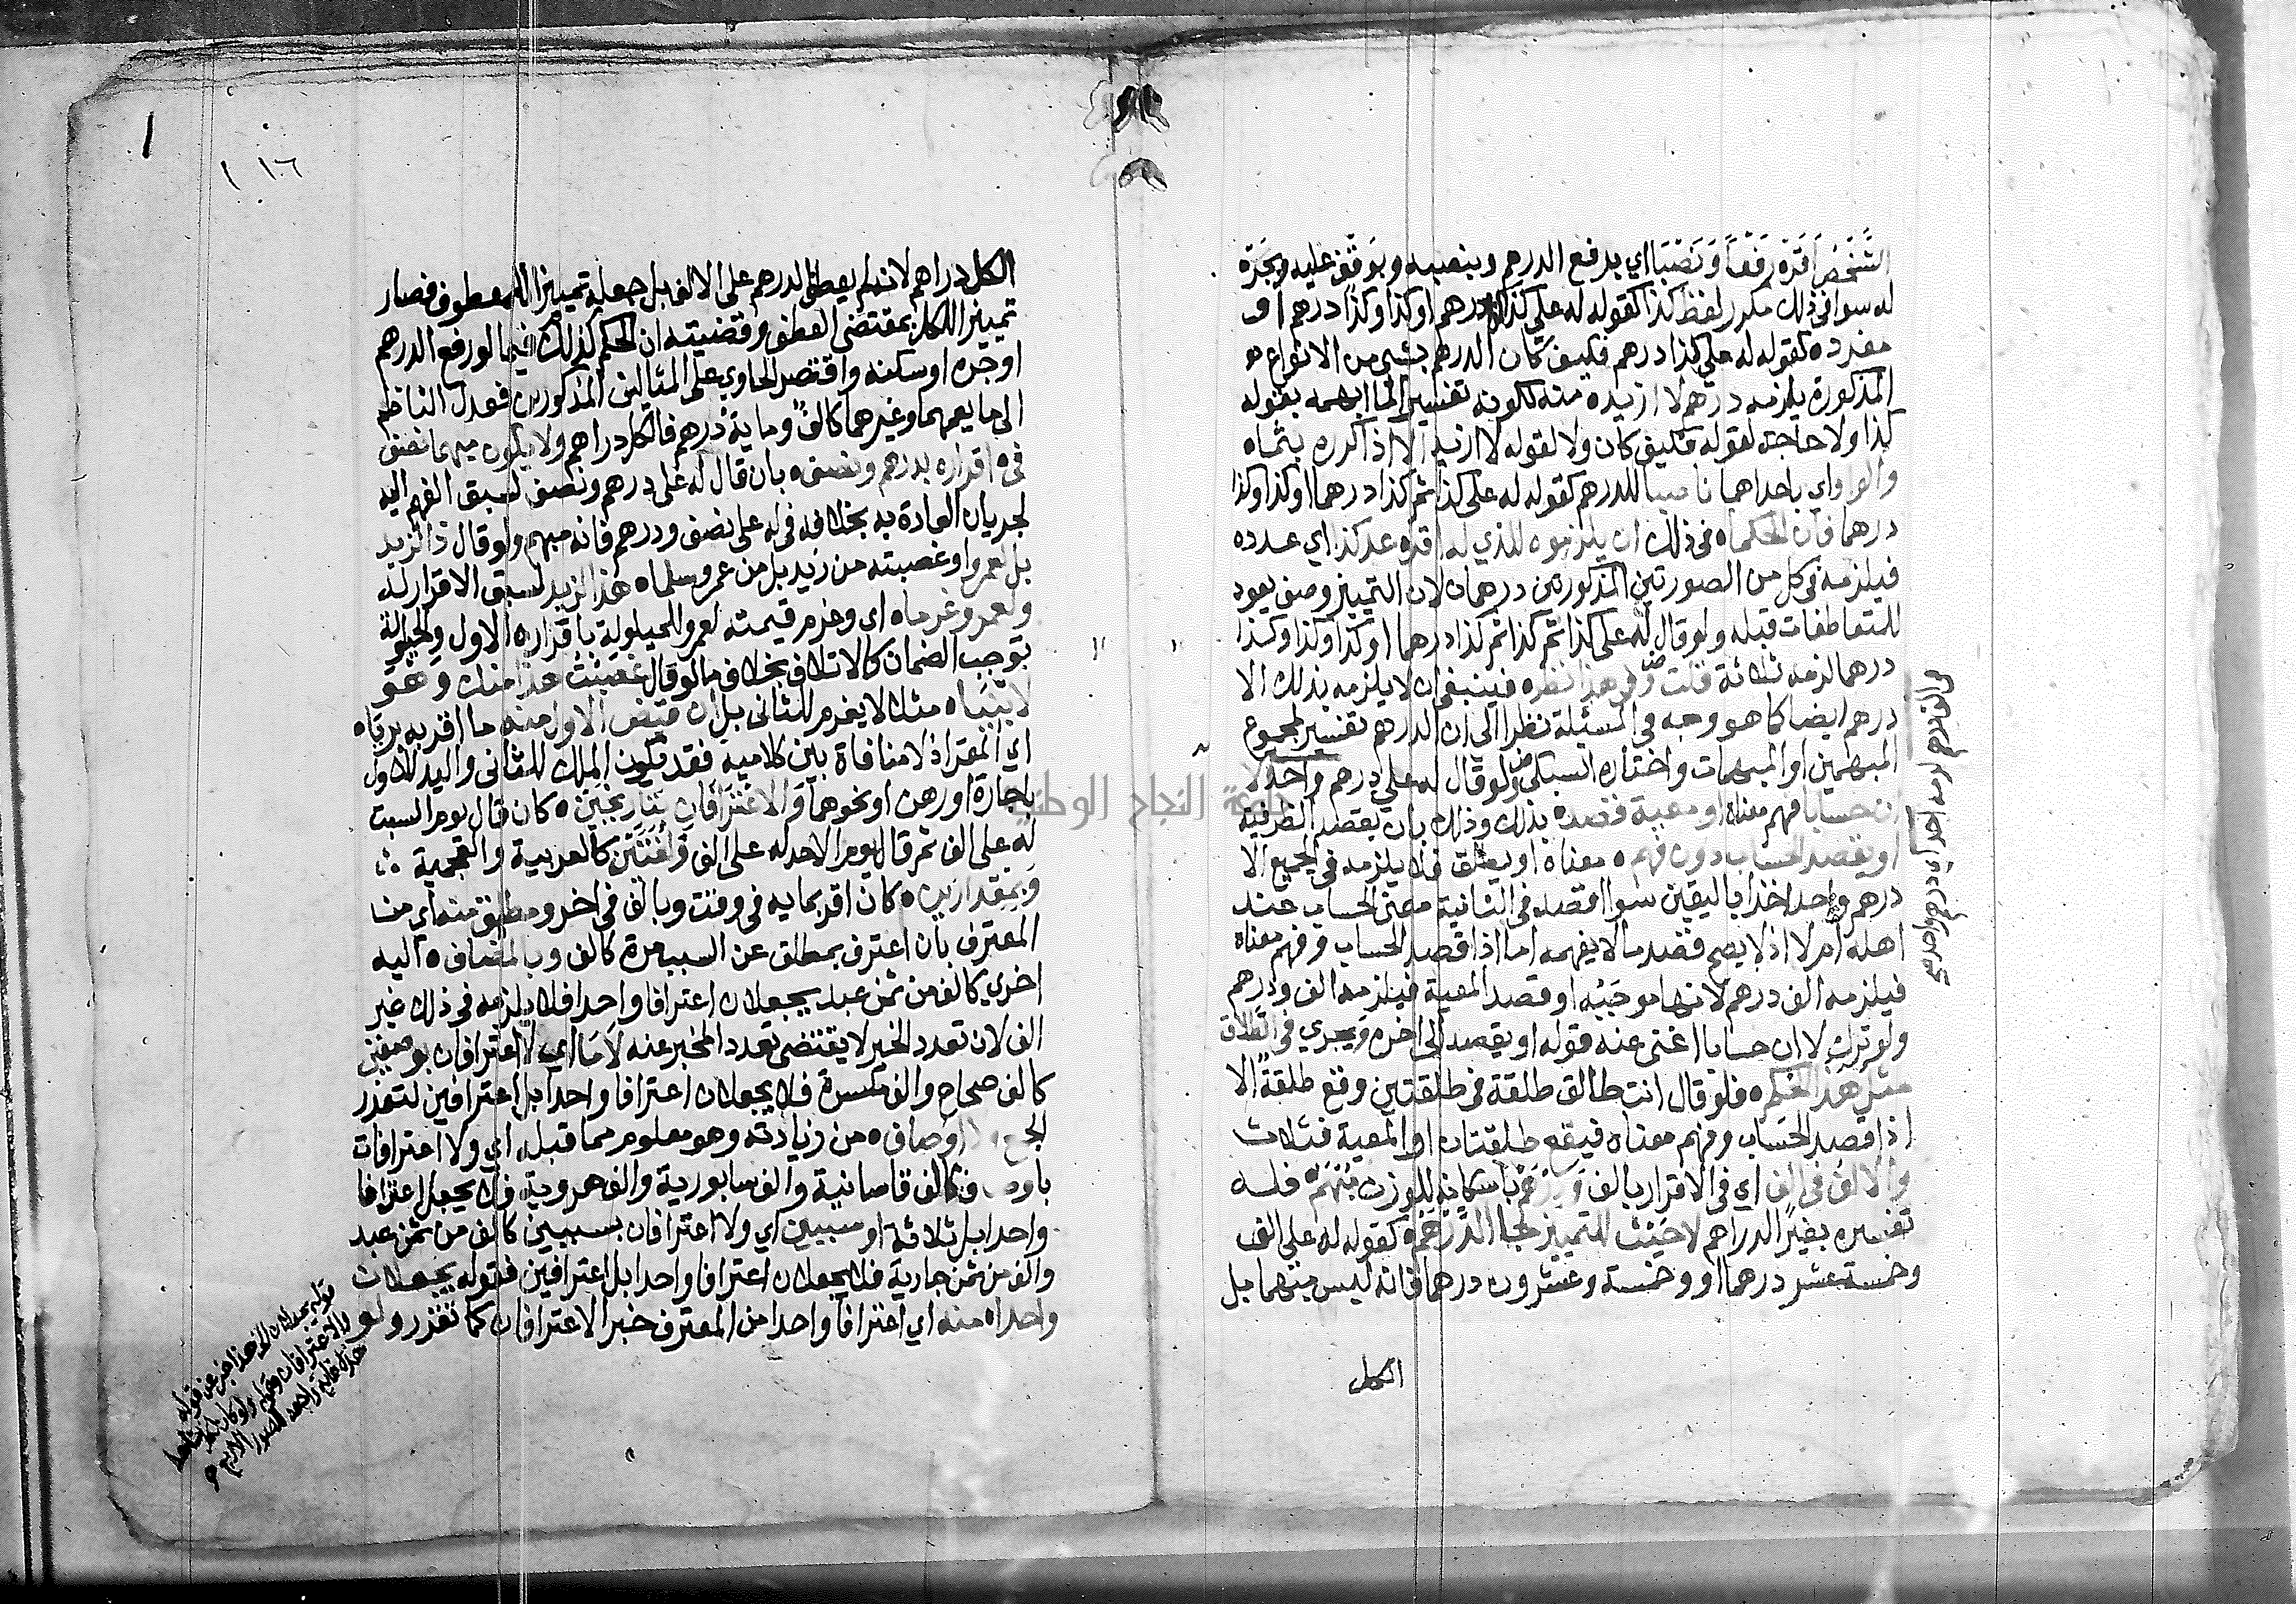 الشخص اقره رفعا ونصبا اي برفع الدرهم وبنصبه وبوقف عليه وبجره
له سوا في ذلك مكرر لفظ كذا كقوله له علي كذا كذا درهم او كذا وكذا درهم او
مفرده كقوله له علي كذا درهم فكيف كان الدرهم بشي من الانواع
المذكورة يلزمه درهم لا ازيده منه لكونه تفسيرا لما ابهمه بقوله
كذا ولا حاجة لقوله فكيف كان ولا لقوله لا ازيد الا اذا كرره بثماه
والواو اي باحداهما ناصبا للدرهم كقوله له على كذا ثم كذا درهما او كذا وكذا
درهما فان الحكماه في ذلك ان يلزموه للذي له اقره عد كذا اي عدده
فيلزمه في كل من الصورتين المذكورتين درهمان لان التمييز وصف يعود
للمتعاطفات قبله ولو قال له على كذا ثم كذا ثم كذا درهما او كذا وكذا وكذا
درهما لزمه ثلاثة قلت وفي هذا نظره فينبغي ان لا يلزمه بذلك الا
درهم ايضا كما هو وجه في المسئلة نظرا الى ان الدرهم تفسير لمجموع
المبهمين او المبهمات واختاره السبكي ولو قال له علي درهم واحد لا
ان حسابا فهم معناه او معية قصده بذلك وذلك بان يقصد الظرفية
او يقصد الحساب دون فهمه معناه او يطلق فلا يلزمه في الجميع الا
درهم واحد اخذا باليقين سوا اقصد في الثانية معنى الحساب عند
اهله ام لا اذ لا يصح قصد ما لا يفهمه اما اذا قصد الحساب وفهم معناه
فيلزمه الف درهم لانها موجبه او قصد المعية فيلزمه الف ودرهم
ولو ترك لا ان حسابا اغنى عنه قوله او يقصد الى اخره ويجري في الطلاق
مثل هذا الحكم فلو قال انت طالق طلقة في طلقتين وقع طلقة الا
اذا قصد الحساب وفهم معناه فيقع طلقتان او المعية فثلاث
والالف في الف اي في الاقرار بالف ودرهم باسكانه للوزن مبهمه فله
تفسيره بغير الدراهم لا حيث للتمييز جا الدرهمه كقوله له على الف
وخمسة عشر درهما او وخمسة وعشرون درهما فانه ليس مبهما بل
الكل
الكل دراهم لانه لم يعطف الدرهم على الالف بل جعله تمييزا للمعطوف فصار
تمييزا للكل بمقتضى العطف وقضيته ان الحكم كذلك فيما لو رفع الدرهم
او جره او سكنه واقتصر الحاوي على المثالين المذكورين فعدل الناظم
الى ما يعمهما وغيرهما كالف وماية درهم فالكل دراهم ولا يكون مبهما نصف
في اقراره بدرهم ونصفه بان قال له على درهم ونصف لسبق الفهم اليه
لجريان العادة به بخلافه في له على نصف ودرهم فانه مبهم ولو قال ذا لزيد
بل لعمرو او غصبته من زيد بل من عمرو سلماه هذا لزيد لسبق الاقرار له
ولعمرو غرماه اي وغرم قيمته لعمرو للحيلولة باقراره الاول والحيلولة
توجب الضمان كالاتلاف بخلاف ما لو قال غصبت هذا منك وهو
لابنباه مثلا لا يغرم للثاني بل ان قبض الاول منه ما اقر به برباه
اي المقر اذ لا منافاة بين كلاميه فقد تكون الملك للثاني واليد للاول
باجارة او رهن او نحوهما والاعترافان بتاريخين كان قال يوم السبت
له على الف ثم قال يوم الاحد له على الف ولغتين كالعربية والعجمية
وبمقدارين كان اقر بماية في وقت وبالف في اخر ومطلق منه اي من
المعترف بان اعترف بمطلق عن السبب مرة كالف وبالمضافه اليه
اخري كالف من ثمن عبد يجعلان اعترافا واحدا فلا يلزمه في ذلك غير
الف لان تعدد الخبر لا يقتضي تعدد المخبر عنه لا ما اي لا اعترافان بوصفين
كالف صحاح والف مكسرة فلا يجعلان اعترافا واحدا بل اعترافين لتعذر
الجمع اوصافه من زيادته وهو معلوم مما قبله اي ولا اعترافات
باوصاف كالف قاسانية والف سابورية والف هروية فلا يجعل اعترافا
واحدا بل ثلاثة او سببين اي ولا اعترافان بسببين كالف من ثمن عبد
والف من ثمن جارية فلا يجعلان اعترافا واحدا بل اعترافين فقوله يجعلان
واحداه منه اي اعترافا واحدا من المعترف خبر الاعترافان كما تقرر ولو
١٠٦
جامعة النجاح الوطنية